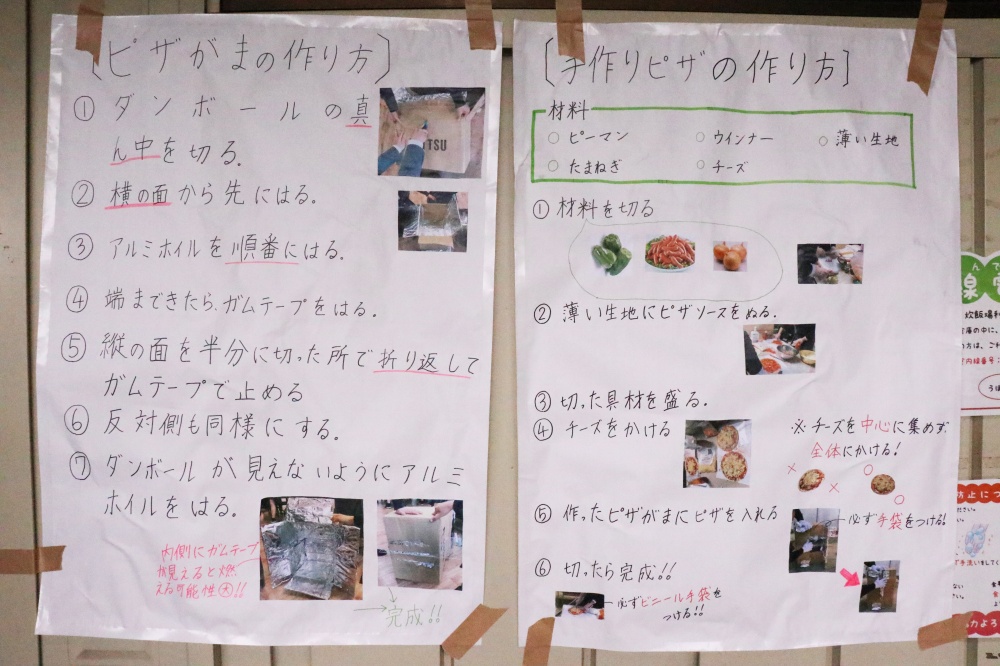 〔ピザがまの作り方〕
① ダンボールの真
ん中を切る。
② 横の面から先にはる。
③ アルミホイルを順番にはる。
④ 端まできたら、ガムテープをはる。
⑤ 縦の面を半分に切った所で折り返して
ガムテープで止める
⑥ 反対側も同様にする。
⑦ ダンボールが見えないようにアルミ
ホイルをはる。
内側にガムテープ
が見えると燃
える可能性大!!
完成!!
TSU
〔手作りピザの作り方〕
材料
○ ピーマン
○ ウインナー
○ 薄い生地
○ たまねぎ
○ チーズ
① 材料を切る
② 薄い生地にピザソースをぬる。
③ 切った具材を盛る。
④ チーズをかける
※チーズを中心に集めず
全体にかける!
⑤ 作ったピザがまにピザを入れる
必ず手袋をつける!
⑥ 切ったら完成!!
必ずビニール手袋を
つける!!
炊飯場
庫の中に、
方は、ご
内線番号
防止につ
ださい。
手洗い